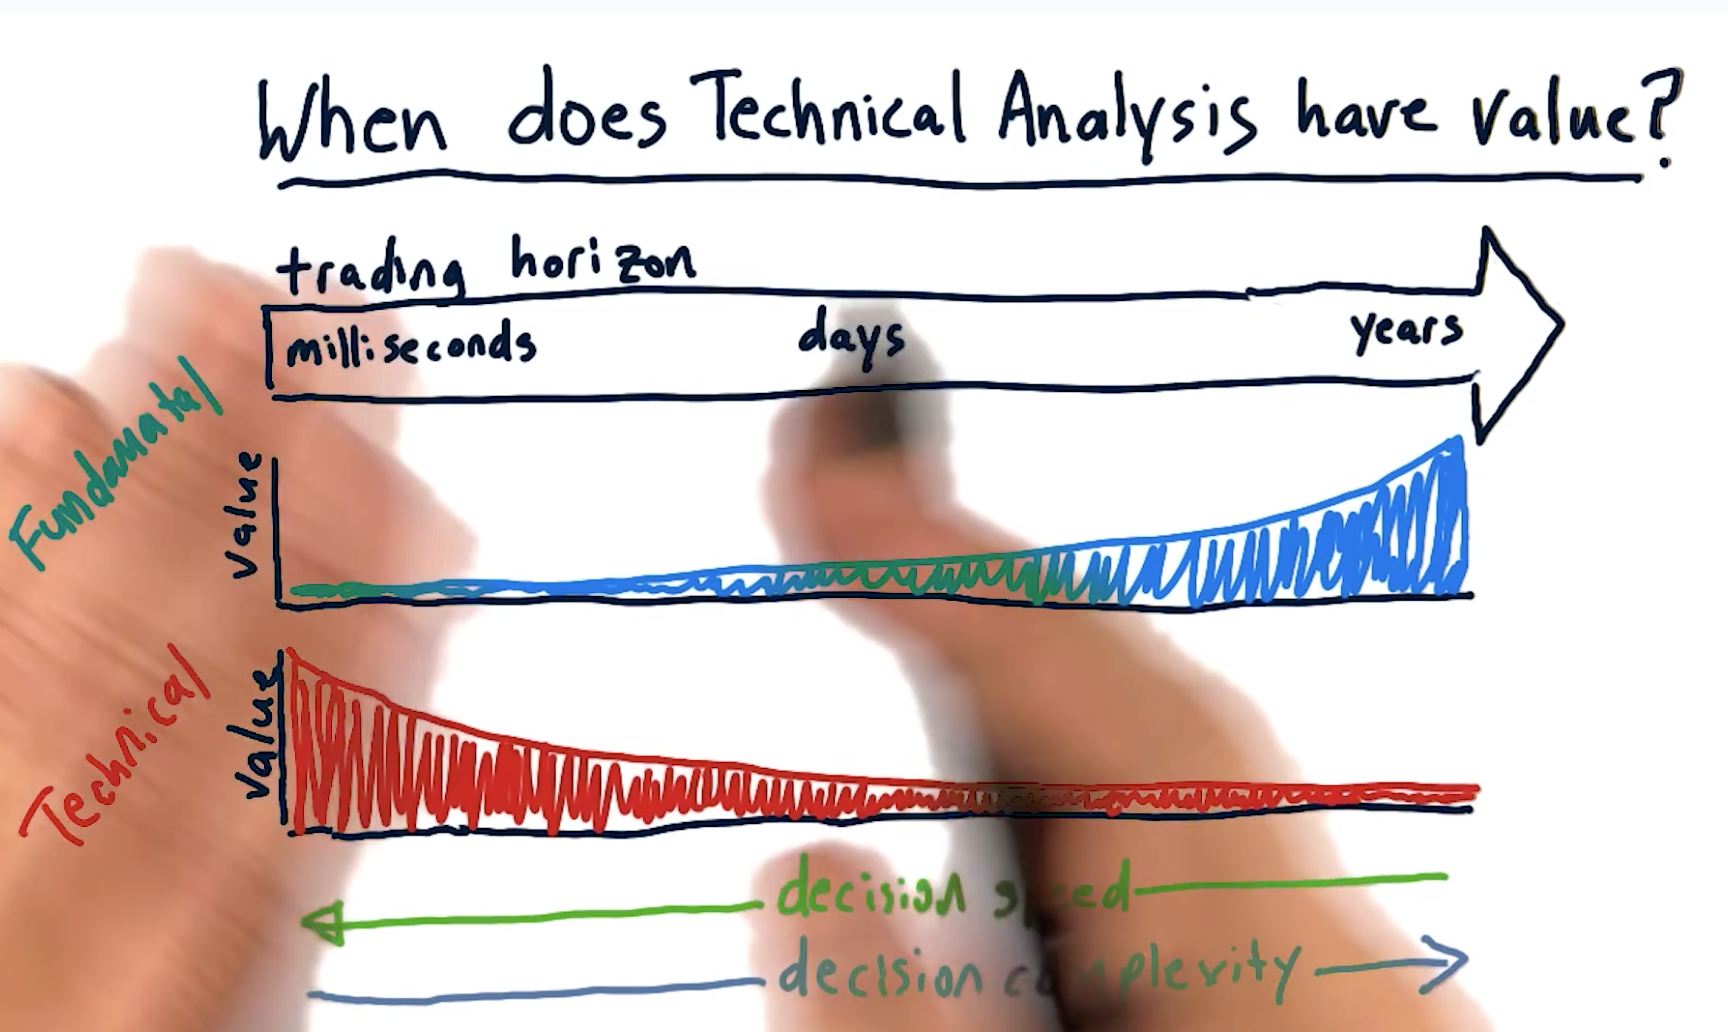 When does Technical Analysis have value?
trading horizon
milliseconds days years
Fundamatal
value
Technical
value
decision speed
decision complexity